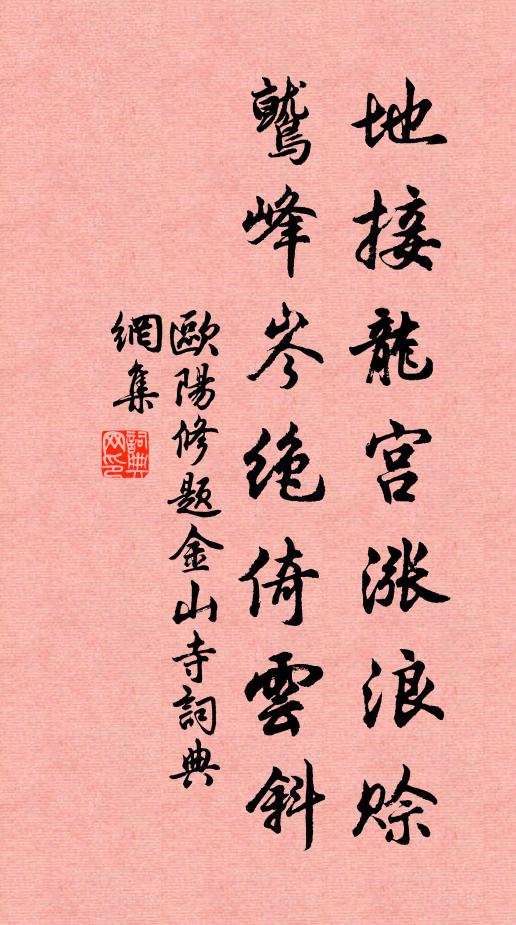 地接龍宮漲浪賒
鷲峰岑絶倚雲斜
歐陽修題金山寺詞典
網集
詞典网印